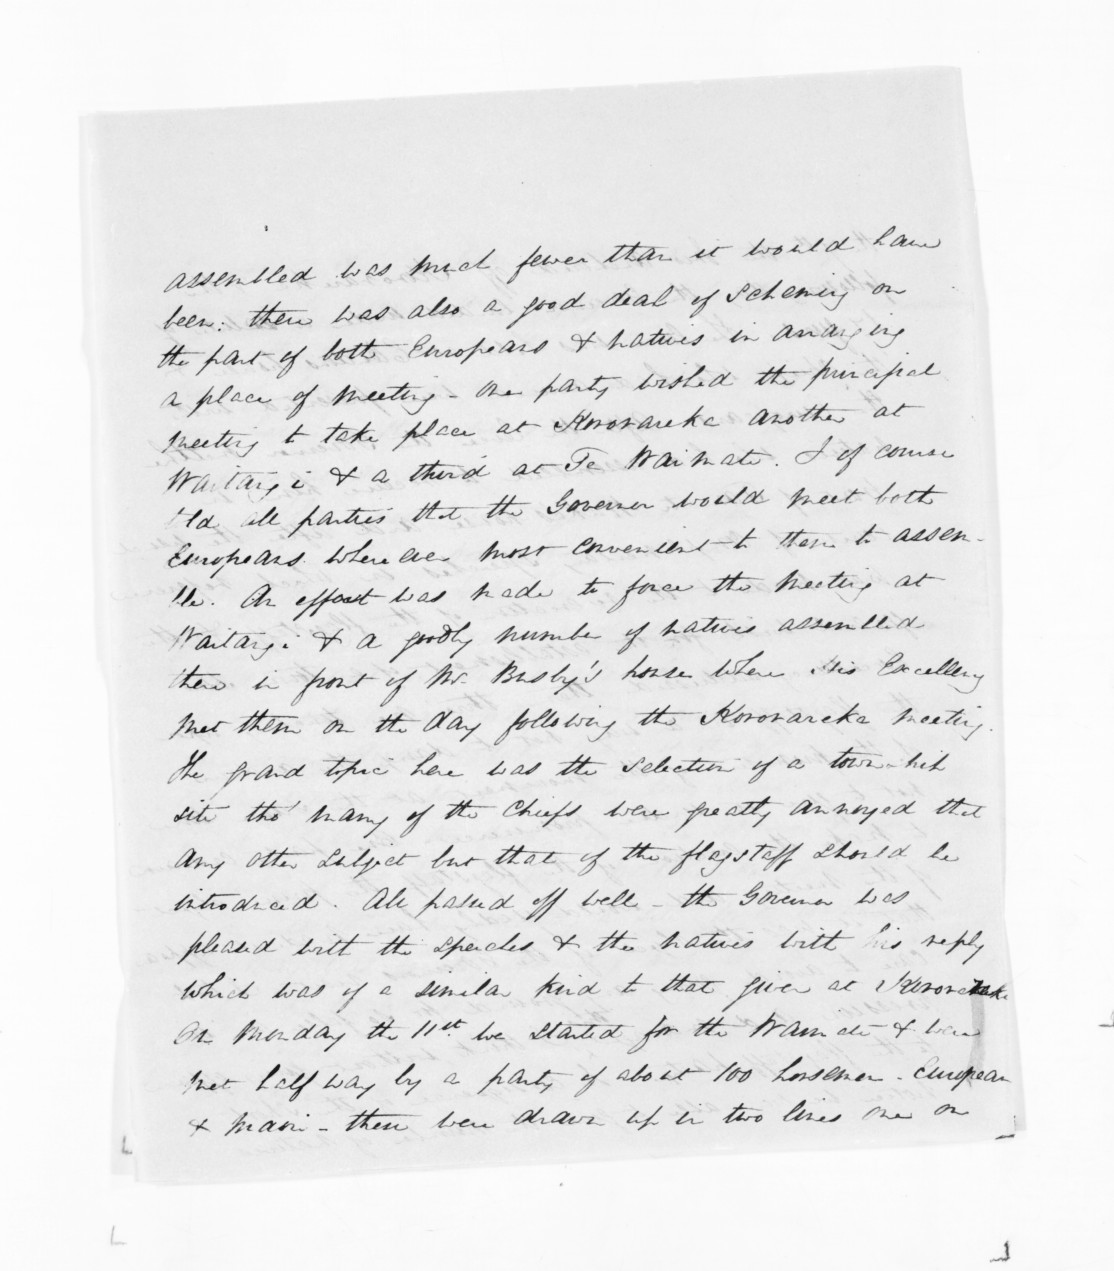 assembled was much fewer than it would have
been: there was also a good deal of scheming on
the part of both Europeans & natives in arranging
a place of meeting - one party wished the principal
meeting to take place at Kororareka another at
Waitangi & a third at Te Waimate. I of course
told all parties that the Governor would meet both
Europeans where ever most convenient to them to assem-
ble. An effort was made to force the meeting at
Waitangi & a goodly number of natives assembled
there in front of Mr. Busby's house where His Excellency
met them on the day following the Kororareka meeting.
The grand topic here was the selection of a town-
site tho' many of the Chiefs were greatly annoyed that
any other subject but that of the flagstaff should be
introduced. All passed off well - the Governor was
pleased with the speeches & the natives with his reply
which was of a similar kind to that given at Kororareka
On Monday the 11st. we started for the Waimate & were
met half way by a party of about 100 horsemen - European
& Maori - these were drawn up in two lines one on